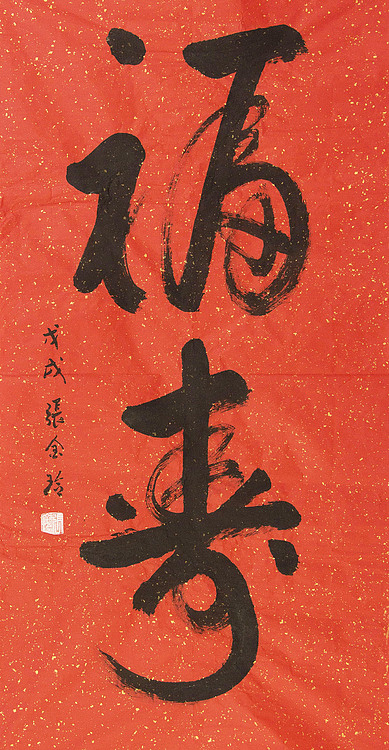 福寿
戊戌 張金玲